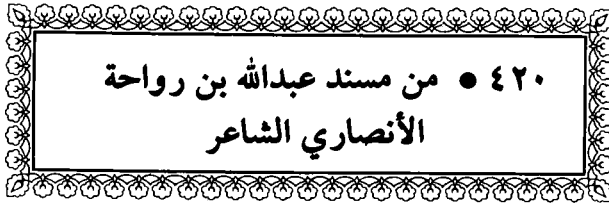 ٤٢٠ • من مسند عبدالله بن رواحة
الأنصاري الشاعر